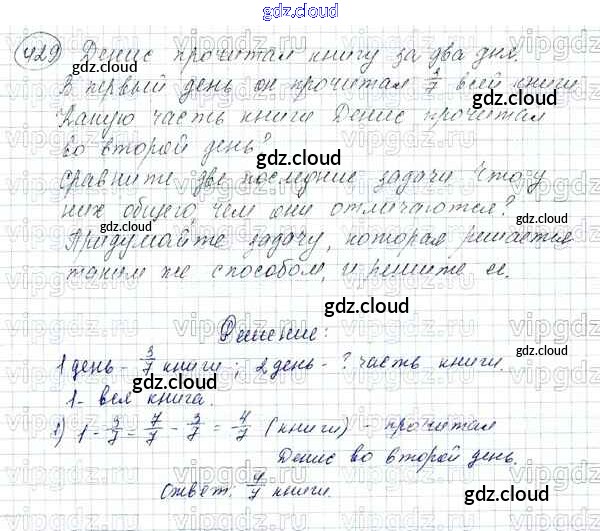 gdz.cloud
429 Денис прочитал книгу за два дня.
В первый день он прочитал 3/7 всей книги
Какую часть книги Денис прочитал
во второй день?
Сравните две последние задачи. Что у
них общего, чем они отличаются?
Придумайте задачу, которая решается
таким же способом, и решите ее.
Решение:
1 день - 3/7 книги; 2 день - ? часть книги.
1 - вся книга.
1) 1 - 3/7 = 7/7 - 3/7 = 4/7 (книги) - прочитал
Денис во второй день.
Ответ: 4/7 книги.
gdz.cloud
gdz.cloud
gdz.cloud
gdz.cloud
gdz.cloud
gdz.cloud
gdz.cloud
gdz.cloud
gdz.cloud
vipgdz